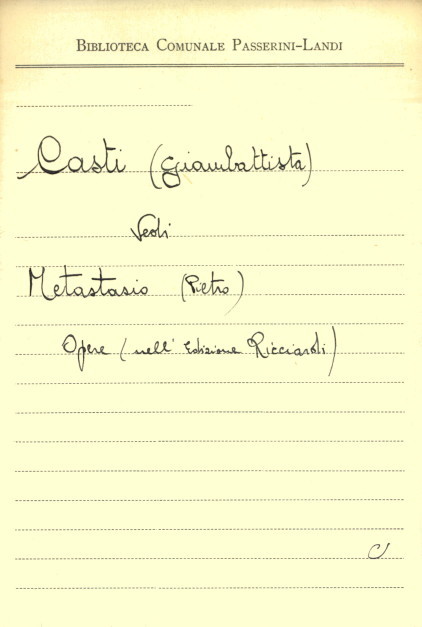 BIBLIOTECA COMUNALE PASSERINI-LANDI
Casti (Giambattista)
Vedi
Metastasio (Pietro)
Opere (nell' Edizione Ricciardi)